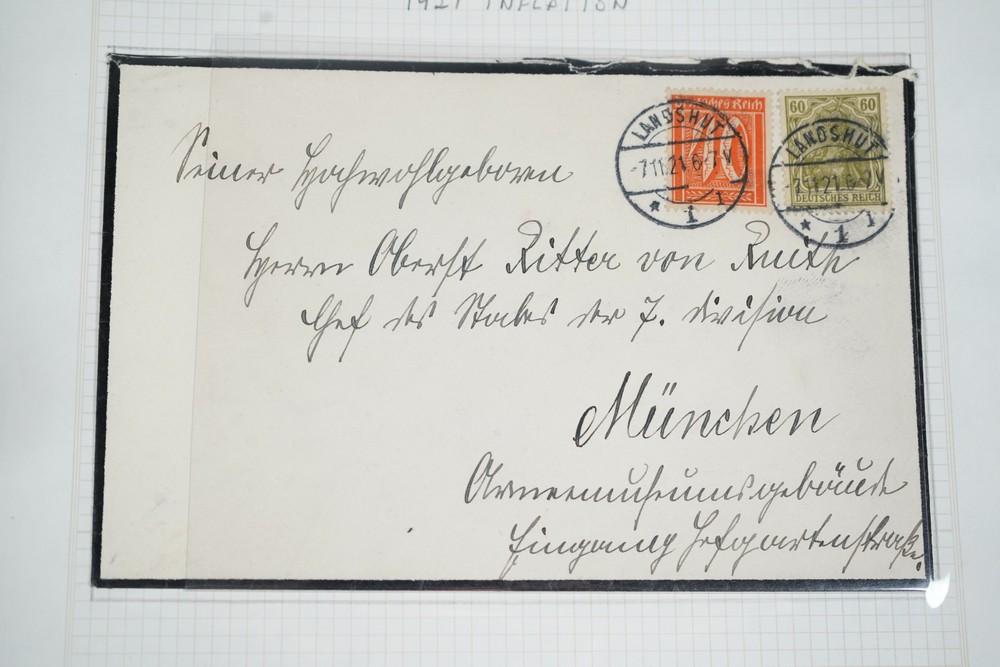 1921 INFLATION
Deutsches Reich
60 60
DEUTSCHES REICH
LANDSHUT
-7.11.21.6-7V
* 1 1
LANDSHUT
7.11.21.6-7V
* 1 1
Seiner Hochwohlgeboren
Herrn Oberst Ritter von Ruith
Chef des Stabes der 7. Division
München
Armeemuseumsgebäude
Eingang Hofgartenstraße.